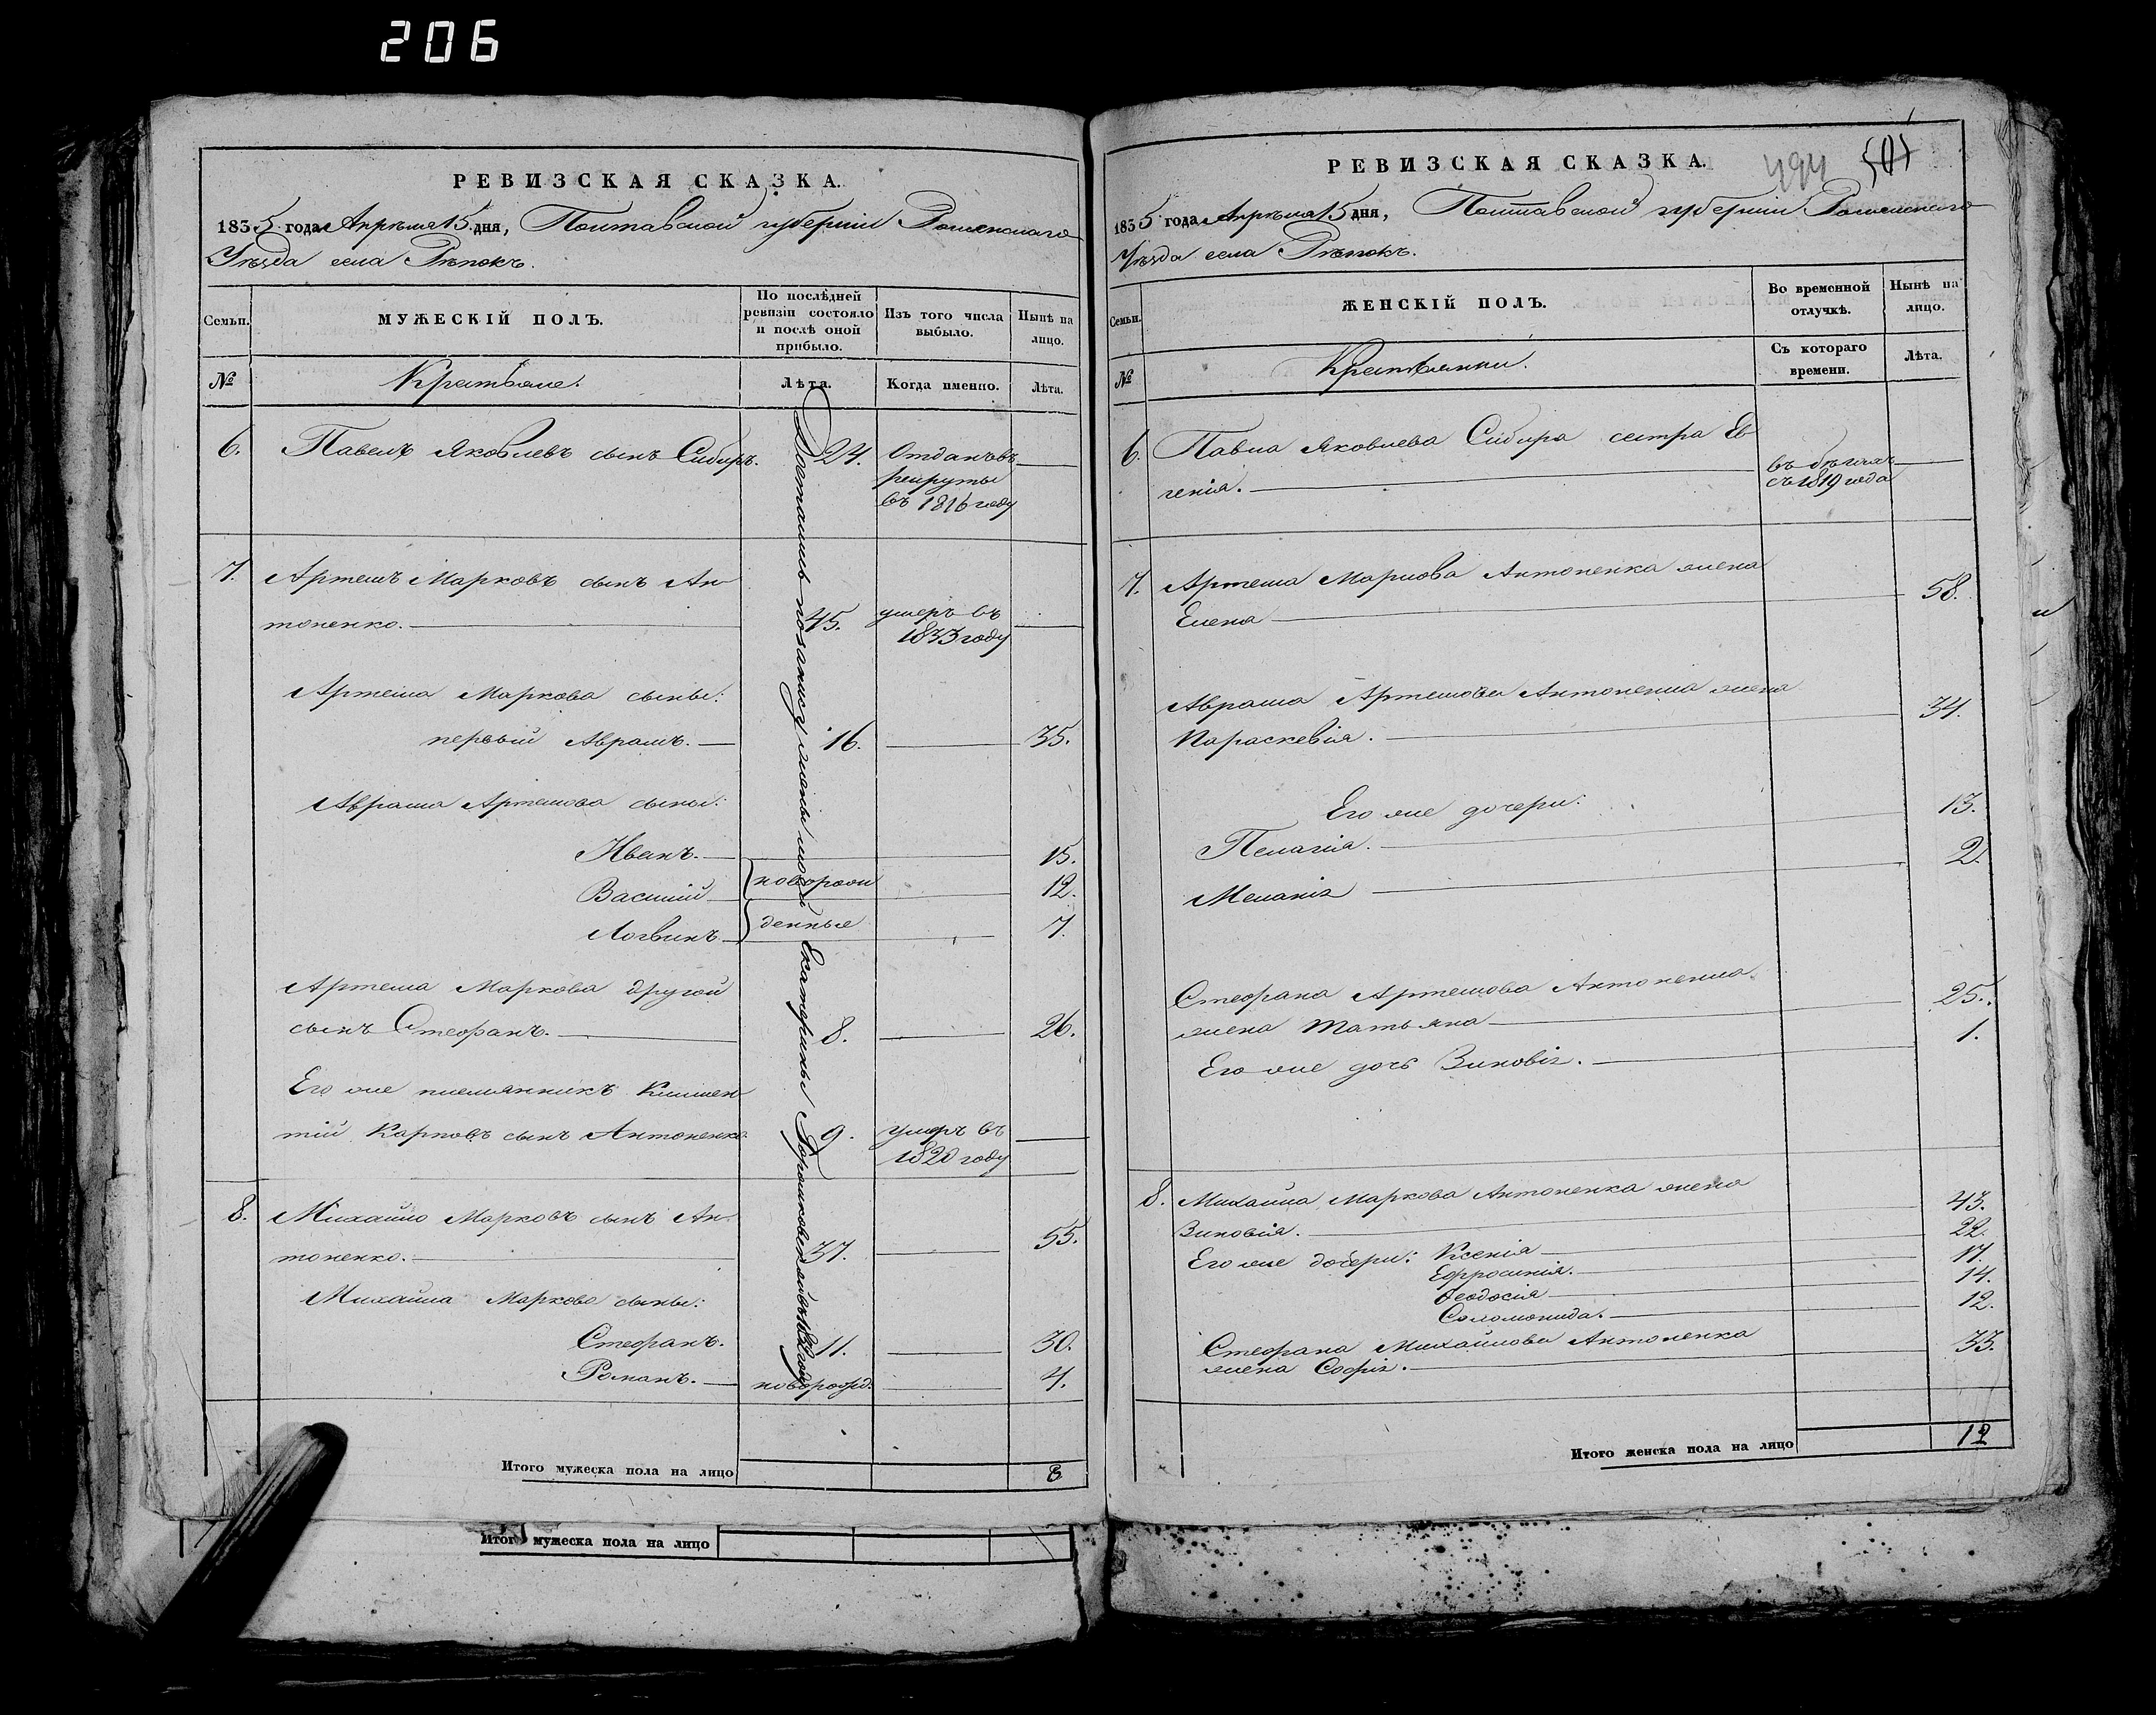 206
РЕВИЗСКАЯ СКАЗКА.
1835 года Апрѣля 15 дня, Полтавской губерніи Роменскаго
Уѣзда села Рѣпокъ.
Семьи.
МУЖЕСКІЙ ПОЛЪ.
По послѣдней
ревизіи состояло
и послѣ оной
прибыло.
Изъ того числа
выбыло.
Нынѣ на
лицо.
№
Крестьяне.
Лѣта.
Когда именно.
Лѣта.
6. Павелъ Яковлевъ сынъ Сибирь. 24. Отданъ въ
рекруты
въ 1816 году
7. Артемъ Марковъ сынъ Ан
тоненко. 45. умеръ въ
1833 году
Артема Маркова сыны:
первый Аврамъ. 16. 35.
Аврама Артемова сыны:
Иванъ. 15.
Василій новорож 12.
Логвинъ денные 7.
Артема Маркова другой
сынъ Стефанъ. 8. 26.
Его же племянникъ Климен
тій Карповъ сынъ Антоненко 9. умеръ въ
1820 году
8. Михайло Марковъ сынъ Ан
тоненко. 37. 55.
Михайла Маркова сыны:
Стефанъ. 11. 30.
Романъ. новорожд. 4.
Итого мужеска пола на лицо 8
Достались по запису жены моей Екатерины
Итого мужеска пола на лицо
РЕВИЗСКАЯ СКАЗКА.
494
1835 года Апрѣля 15 дня, Полтавской губерніи Роменскаго
Уѣзда села Рѣпокъ.
Семьи.
ЖЕНСКІЙ ПОЛЪ.
Во временной
отлучкѣ.
Нынѣ на
лицо.
№
Крестьянки.
Съ котораго
времени.
Лѣта.
6. Павла Яковлева Сибира сестра Ев
генія. въ бѣгахъ
съ 1819 года
7. Артема Маркова Антоненка жена
Елена 58.
Аврама Артемова Антоненка жена
Параскевія. 34.
Его же дочери:
Пелагія. 13.
Меланія 2.
Стефана Артемова Антоненка
жена Татьяна 25.
Его же дочь Зиновія. 1.
8. Михайла Маркова Антоненка жена
Зиновія. 43.
Его же дочери: Ксенія 22.
Ефросинія. 17.
Феодосія 14.
Соломонида. 12.
Стефана Михайлова Антоненка
жена Софія. 33.
Итого женска пола на лицо 12